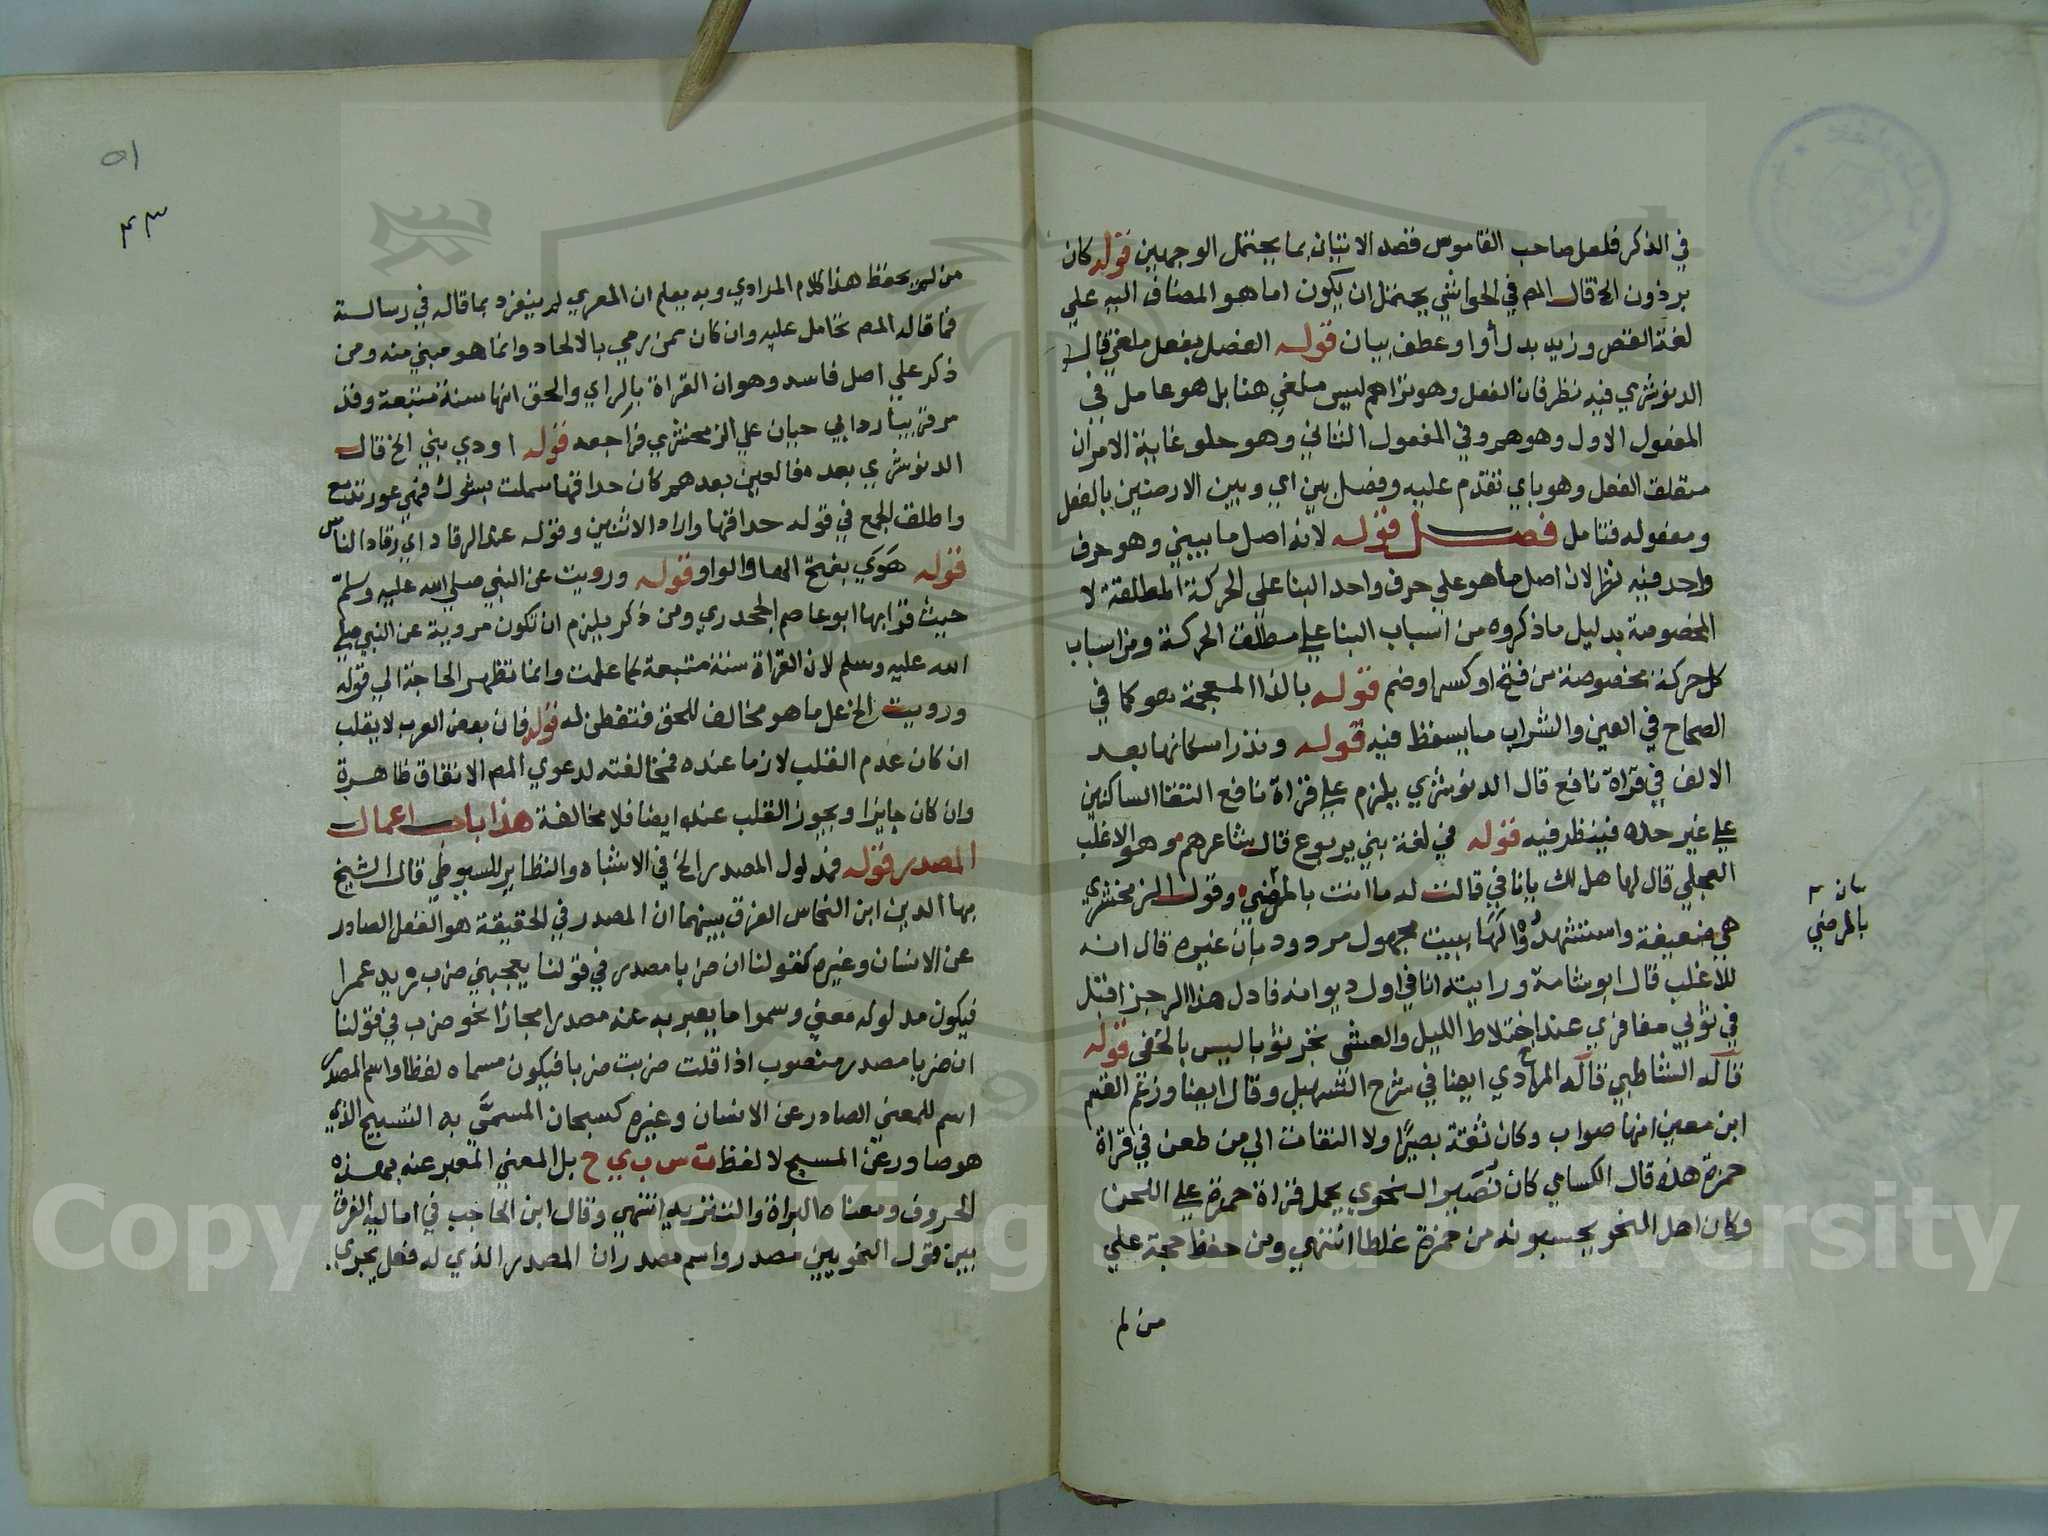 في الذكر فلعل صاحب القاموس قصد الاتيان بما يحتمل الوجهين قوله كان
برذون الخ قال المص في الحواشي يحتمل ان يكون اما هو المضاف اليه علي
لغة القصر وزيد بدل أو عطف بيان قوله الفصل بفعل ملغي قال
الدنوشري فيه نظر فان الفعل وهو تراهم ليس ملغي هنا بل هو عامل في
المفعول الاول وهو هم وفي المفعول الثاني وهو حلو غاية الامر ان
متعلق الفعل وهو باي تقدم عليه وفصل بين اي وبين الارضين بالفعل
ومفعوله فتامل فصل قوله لانه اصل ما يبني وهو حرف
واحد فيه نظر لان اصل ما هو علي حرف واحد البنا علي الحركة المطلقة لا
المخصوصة بدليل ما ذكروه من اسباب البنا علي مطلق الحركة ومن اسباب
كل حركة مخصوصة من فتح او كسر او ضم قوله بالذا المعجمة هو كما في
الصحاح في العين والشراب ما يسقط فيه قوله وندر اسكانها بعد
الالف في قراة نافع قال الدنوشري يلزم علي قراة نافع التقا الساكنين
علي غير حده فينظر فيه قوله في لغة بني يربوع قال شاعرهم وهو الاغلب
العجلي قال لها هل لك ياتا في قالت له ما انت بالمرضي وقول الزمخشري
هي ضعيفة واستشهدوا لها ببيت مجهول مردود بان غيره قال انه
للاغلب قال ابو شامة ورايته انا في اول ديوانه فاول هذا الرجز اقبل
في ثوبي معافري عند اختلاط الليل والعشي قوله
قاله الشاطبي قاله المرادي ايضا في شرح التسهيل وقال ايضا وزعم القسم
ابن معين انها صواب وكان ثقة بصيرا ولا التفات الي من طعن في قراة
حمزة هذه قال الكسائي كان نصير النحوي يحمل قراة حمزة علي اللحن
وكان اهل النحو يحسبونه من حمزة غلطا انتهي ومن حفظ حجة علي
من لم
بالمرضي
٥١
٤٣
من لم يحفظ هذا كلام المرادي وبه يعلم ان المعري لم ينفرد بما قاله في رسالسته
فما قاله المص تحامل عليه وان كان ممن رمي بالالحاد وانما هو مبني منه ومن
ذكر علي اصل فاسد وهو ان القراة بالراي والحق انها سنة متبعة وقد
مر قريبا رد ابي حيان علي الزمخشري فراجعه قوله اودي بني الخ قال
الدنوشري بعده فالعين بعدهم كأن حداقها سملت بشوك فهي عور تدمع
واطلق الجمع في قوله حداقها واراد الاثنين وقوله عند الرقاد اي رقاد الناس
قوله هَوَي بفتح الها والواو قوله ورويت عن النبي صلي الله عليه وسلم
حيث قرا بها ابو عاصم الجحدري ومن ذكر يلزم ان تكون مروية عن النبي صلي
الله عليه وسلم لان القراة سنة متبعة كما علمت وانما تظهر الحاجة الي قوله
ورويت الخ علي ما هو مخالف للحق فتفطن له قوله فان بعض العرب لا يقلب
ان كان عدم القلب لازما عنده فمخالفته لدعوي المص الاتفاق ظاهرة
وان كان جايزا ويجوز القلب عنده ايضا فلا مخالفة هذا باب اعمال
المصدر قوله فمدلول المصدر الخ في الاشباه والنظاير للسيوطي قال الشيخ
بها الدين ابن النحاس الفرق بينهما ان المصدر في الحقيقة هو الفعل الصادر
عن الانسان وغيره كقولنا ان ضربا مصدر في قولنا يعجبني ضرب زيد عمرا
فيكون مدلوله معني وسموا ما يعبر به عنه مصدرا مجازا نحو ضرب في قولنا
ان ضربا مصدر منصوب اذا قلت ضربت ضربا فيكون مسماه لفظا واسم المصدر
اسم للمعني الصادر عن الانسان وغيره كسبحان المسمَّي به التسبيح الذي
هو صادر عن المسبح لا لفظ ت س ب ي ح بل المعني المعبر عنه بهذه
الحروف ومعناه البراة والتنزيه انتهي وقال ابن الحاجب في اماليه الفرق
بين قول النحويين مصدر واسم مصدر ان المصدر الذي له فعل يجري
Copyright © King Saud University